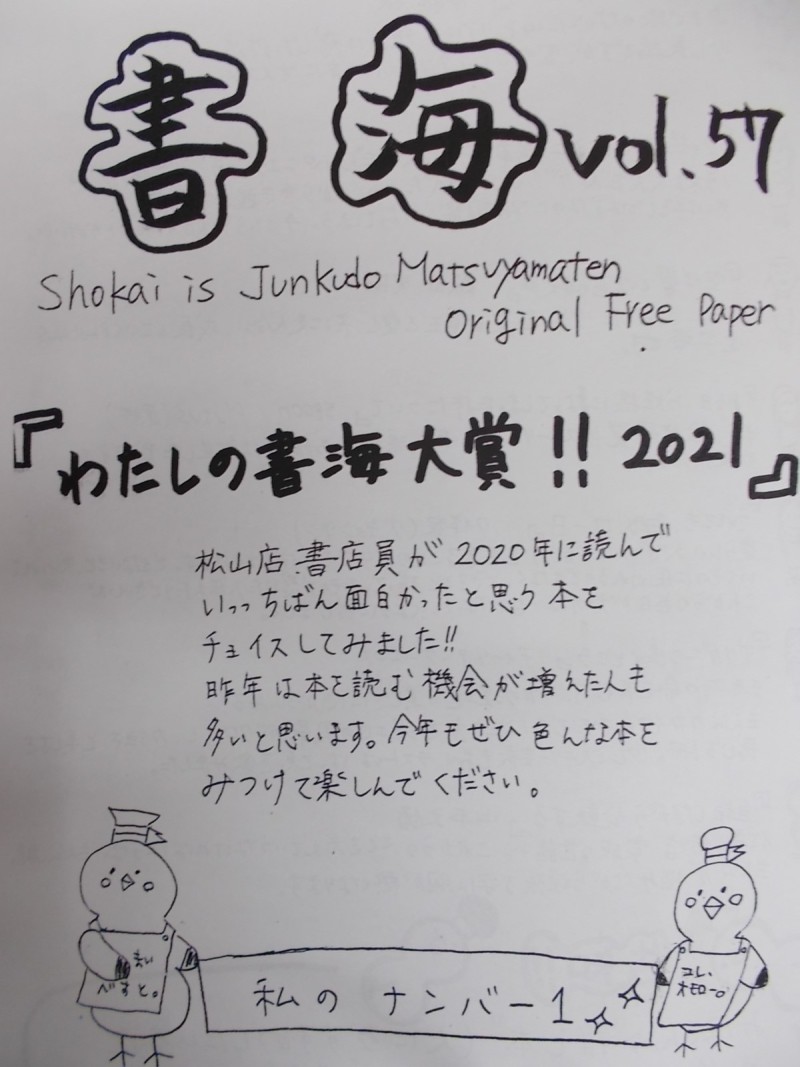 書海 vol.57
Shokai is Junkudo Matsuyamaten
Original Free Paper
『わたしの書海大賞!! 2021』
松山店書店員が2020年に読んで
いっちばん面白かったと思う本を
チョイスしてみました!!
昨年は本を読む機会が増えた人も
多いと思います。今年もぜひ色んな本を
みつけて楽しんでください。
まい
べすと。
私のナンバー1
コレ、
オモロー。